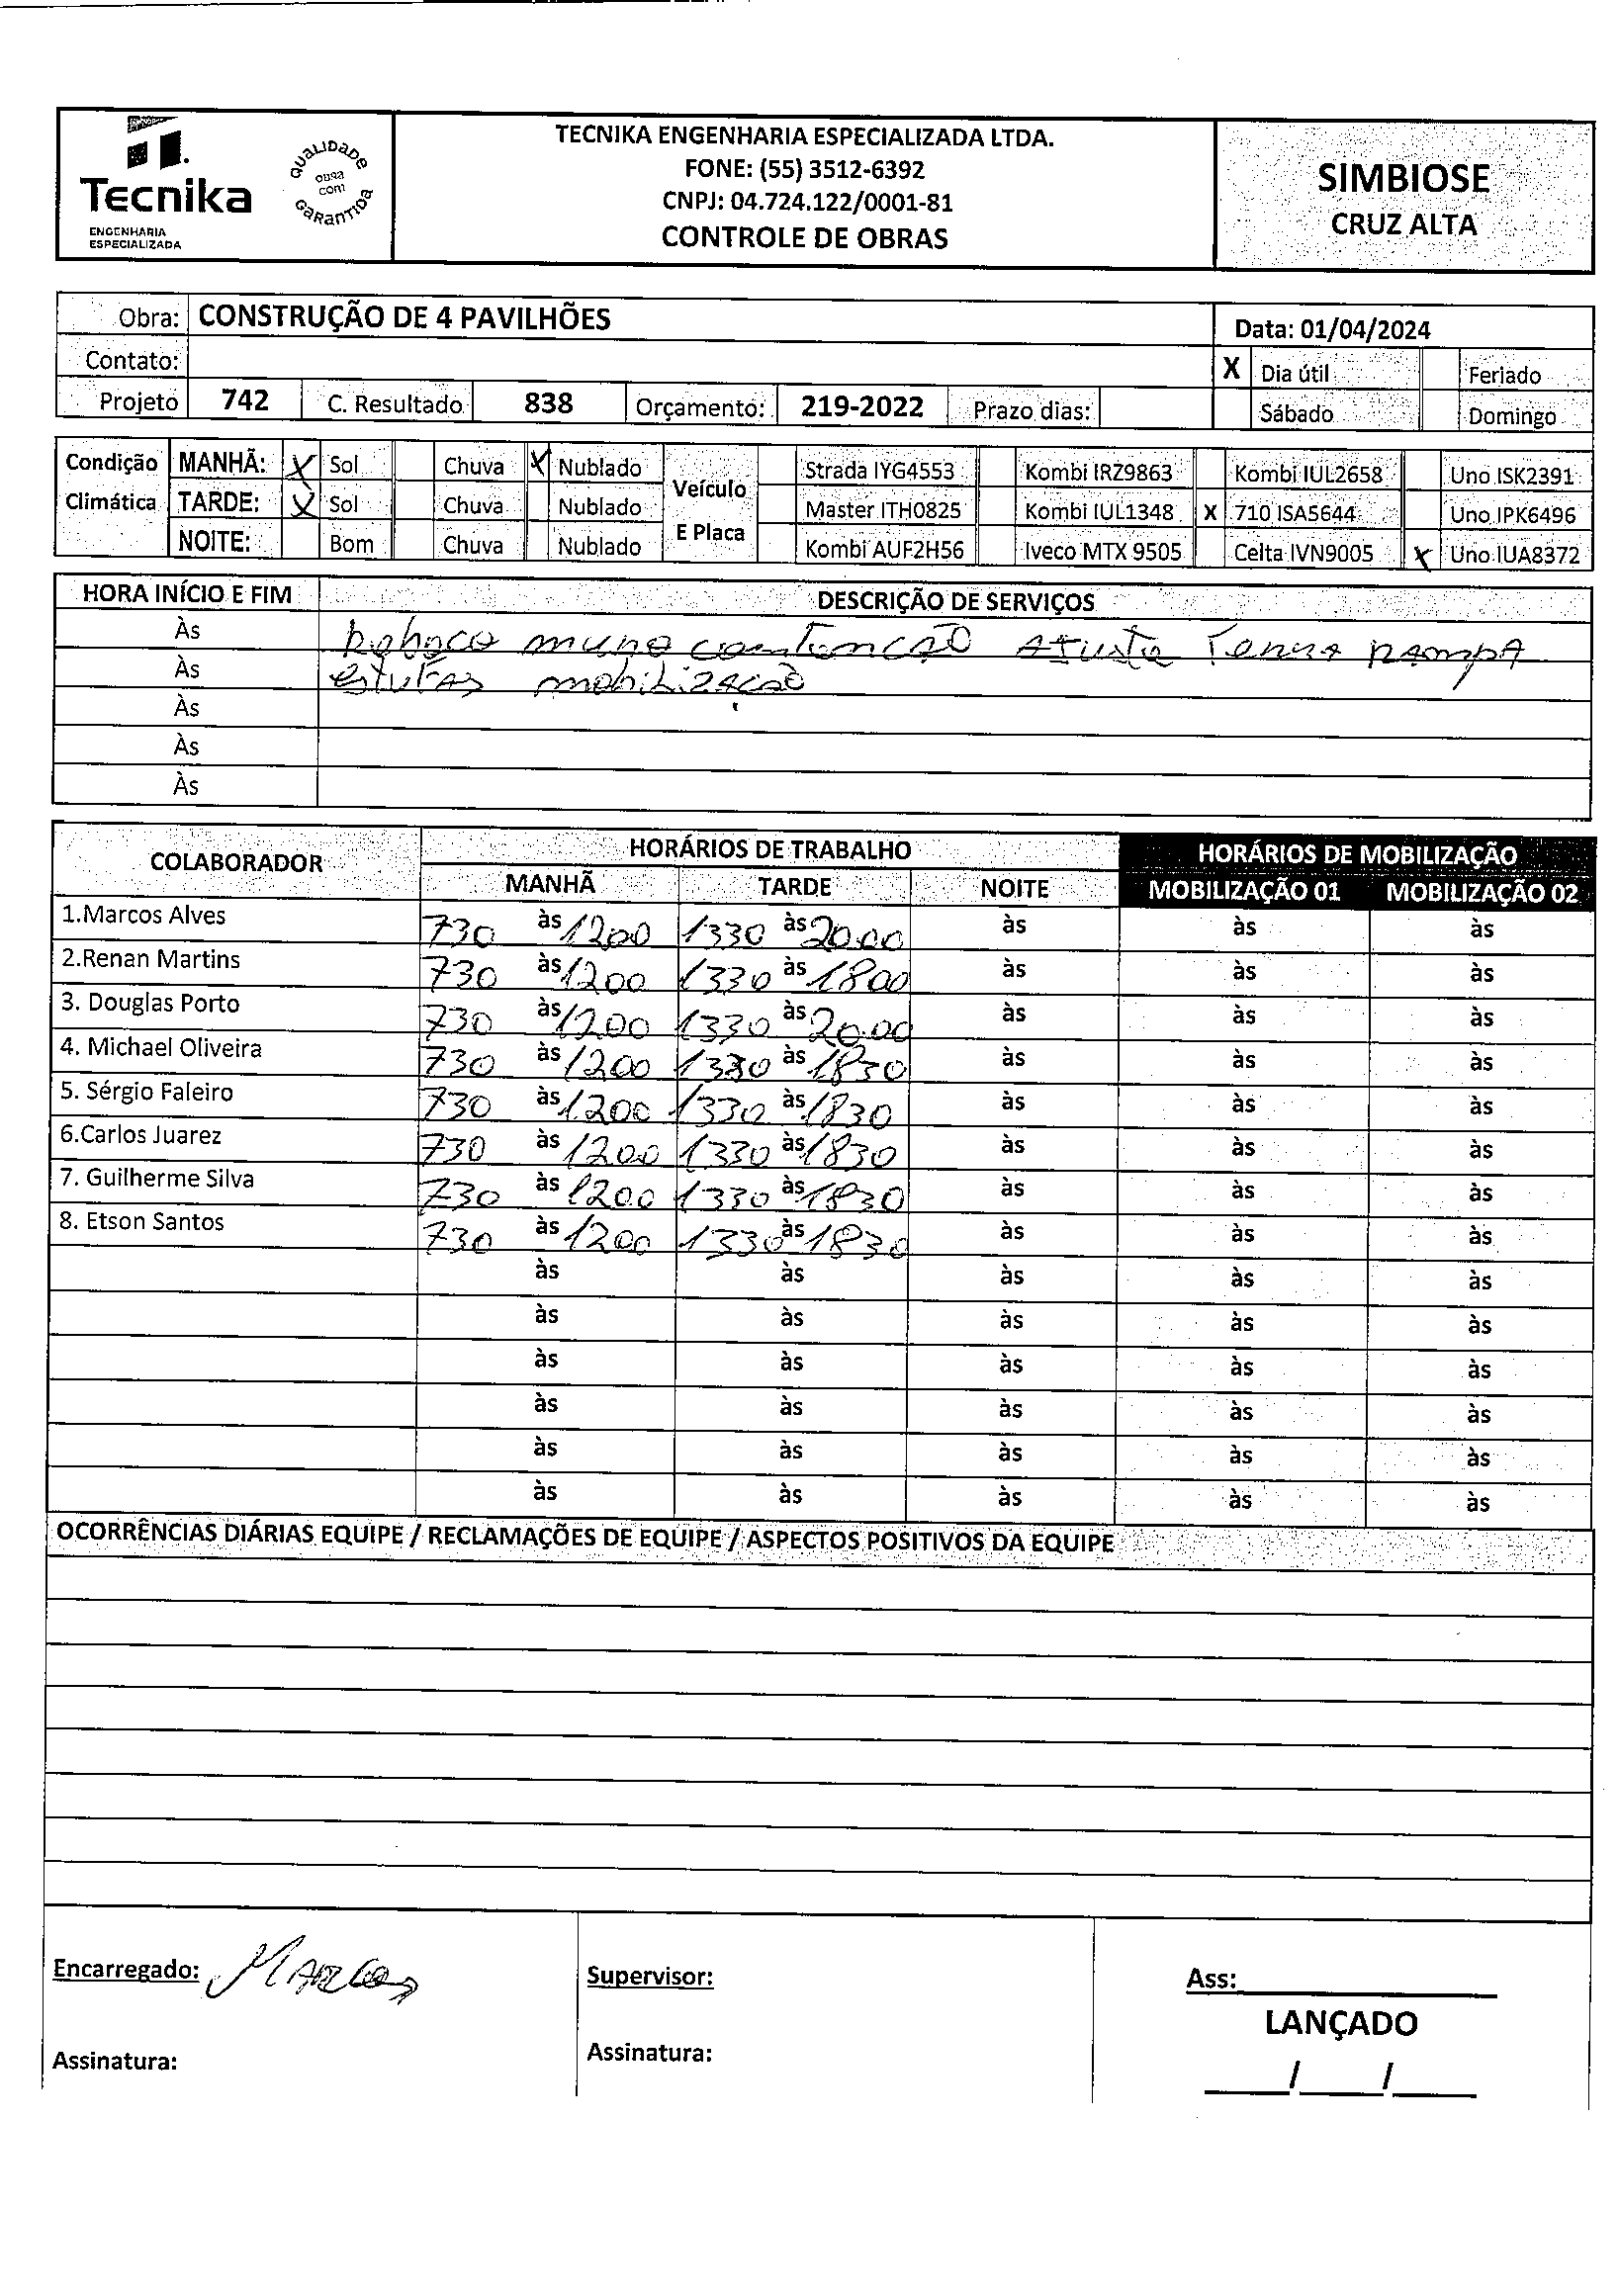 Tecnika
ENGENHARIA
ESPECIALIZADA
QUALIDADE
OBRA
COM
GARANTIDA
TECNIKA ENGENHARIA ESPECIALIZADA LTDA.
FONE: (55) 3512-6392
CNPJ: 04.724.122/0001-81
CONTROLE DE OBRAS
SIMBIOSE
CRUZ ALTA
Obra: CONSTRUÇÃO DE 4 PAVILHÕES
Data: 01/04/2024
Contato:
X Dia útil Feriado
Projeto 742 C. Resultado 838 Orçamento: 219-2022 Prazo dias:
Sábado Domingo
Condição Climática
MANHÃ: X Sol Chuva X Nublado
TARDE: X Sol Chuva Nublado
NOITE: Bom Chuva Nublado
Veículo E Placa
Strada IYG4553 Kombi IRZ9863 Kombi IUL2658 Uno ISK2391
Master ITH0825 Kombi IUL1348 X 710 ISA5644 Uno IPK6496
Kombi AUF2H56 Iveco MTX 9505 Celta IVN9005 X Uno IUA8372
HORA INÍCIO E FIM DESCRIÇÃO DE SERVIÇOS
Às Reboco muro contenção Ajuste Terra rampa
Às mobilização
Às
Às
Às
COLABORADOR HORÁRIOS DE TRABALHO HORÁRIOS DE MOBILIZAÇÃO
MANHÃ TARDE NOITE MOBILIZAÇÃO 01 MOBILIZAÇÃO 02
1.Marcos Alves 730 às 1200 1330 às 20.00 às às às
2.Renan Martins 730 às 1200 1330 às 1800 às às às
3. Douglas Porto 730 às 1200 1330 às 20.00 às às às
4. Michael Oliveira 730 às 1200 1330 às 1830 às às às
5. Sérgio Faleiro 730 às 1200 1330 às 1830 às às às
6.Carlos Juarez 730 às 1200 1330 às 1830 às às às
7. Guilherme Silva 730 às 1200 1330 às 1830 às às às
8. Etson Santos 730 às 1200 1330 às 1830 às às às
às às às às às
às às às às às
às às às às às
às às às às às
às às às às às
às às às às às
OCORRÊNCIAS DIÁRIAS EQUIPE / RECLAMAÇÕES DE EQUIPE / ASPECTOS POSITIVOS DA EQUIPE
Encarregado: Marcos
Supervisor:
Ass:
LANÇADO
Assinatura:
Assinatura:
/ /